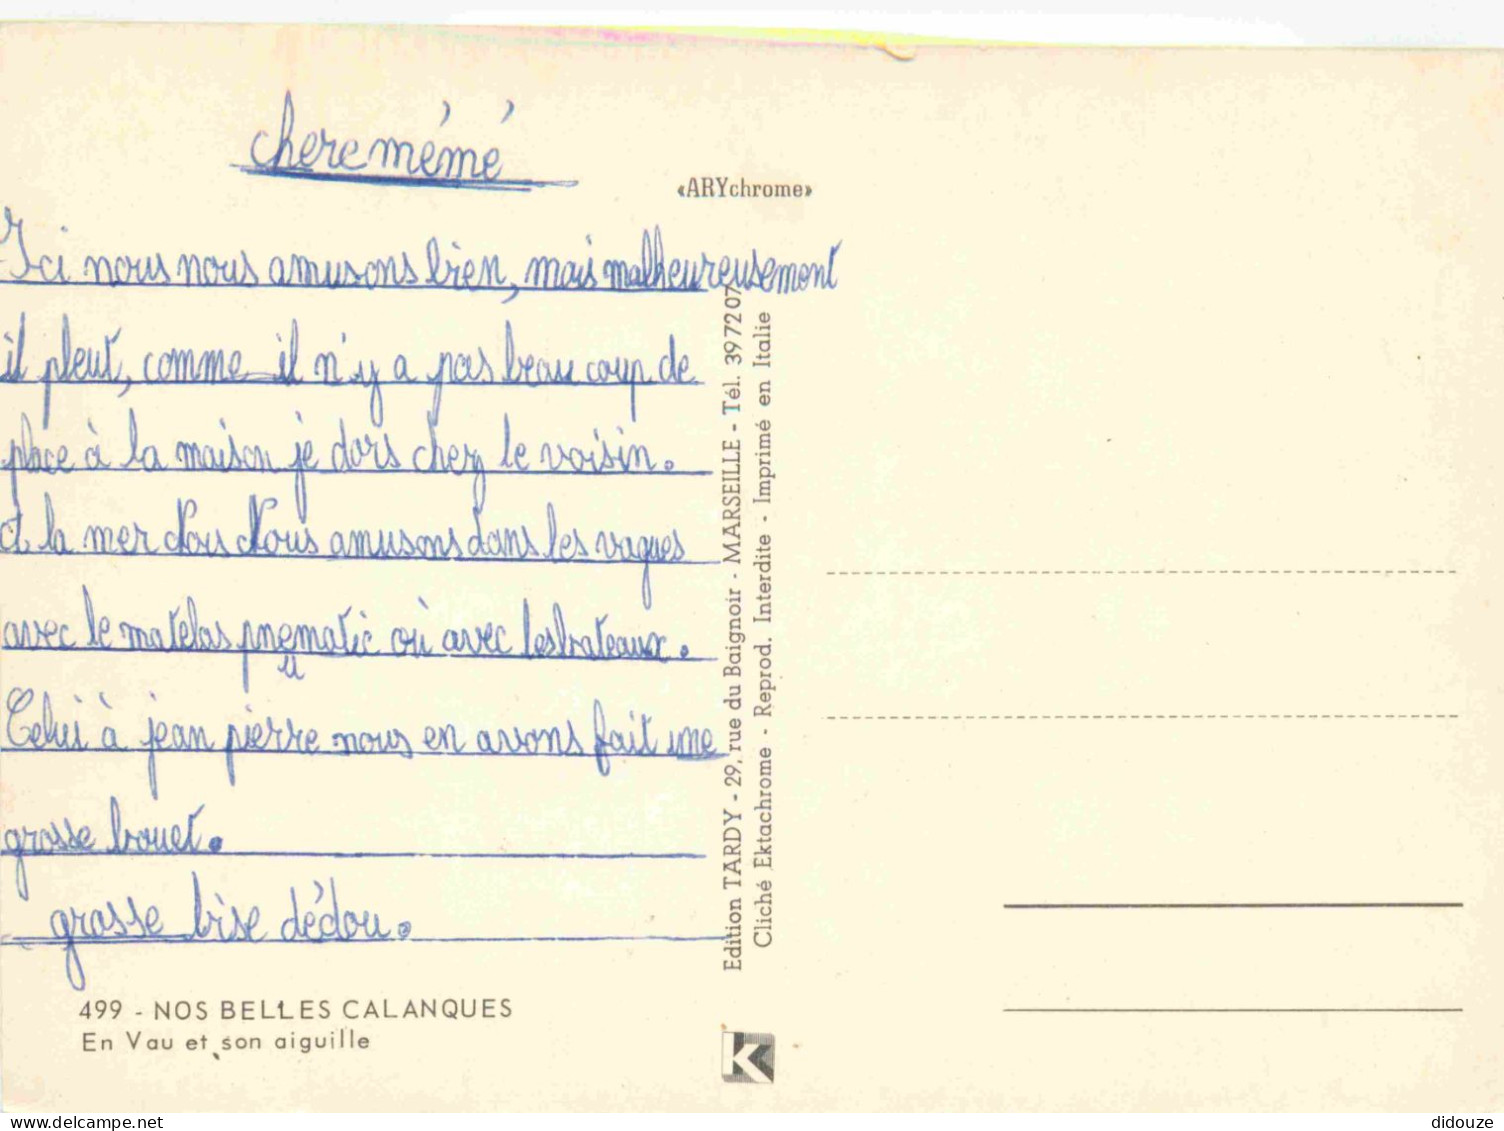 chere mémé
«ARYchrome»
Ici nous nous amusons bien, mais malheureusement
il pleut, comme il n'y a pas beau coup de
place à la maison je dors chez le voisin.
et la mer Nous Nous amusons dans les vagues
avec le matelas pneumatic où avec les bateaux.
Celui à jean pierre nous en avons fait une
grosse bouet.
grosse bise dédou.
Edition TARDY - 29, rue du Baignoir - MARSEILLE - Tél. 397207
Cliché Ektachrome - Reprod. Interdite - Imprimé en Italie
499 - NOS BELLES CALANQUES
En Vau et son aiguille
K
delcampe.net
didouze